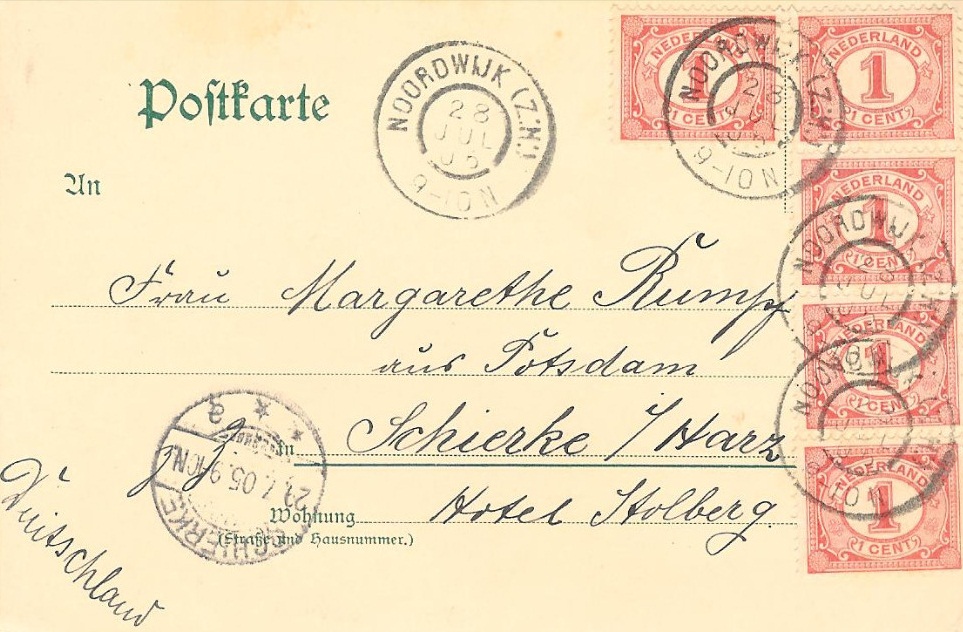 Postkarte
NOORDWIJK (Z:H)
28
JUL
05
9-10N
NEDERLAND
1
1 CENT
NEDERLAND
1
1 CENT
NOORDWIJK (Z:H)
28
JUL
9-10N
An
NEDERLAND
1
1 CENT
NOORDWIJK
Frau Margarethe Rumpf
NEDERLAND
1
1 CENT
aus Potsdam
z. Z. in Schierke i/Harz
SCHIERKE
29.7.05.9-10N.
a
NEDERLAND
1
1 CENT
Wohnung Hotel Stolberg
(Straße und Hausnummer.)
Duitschland